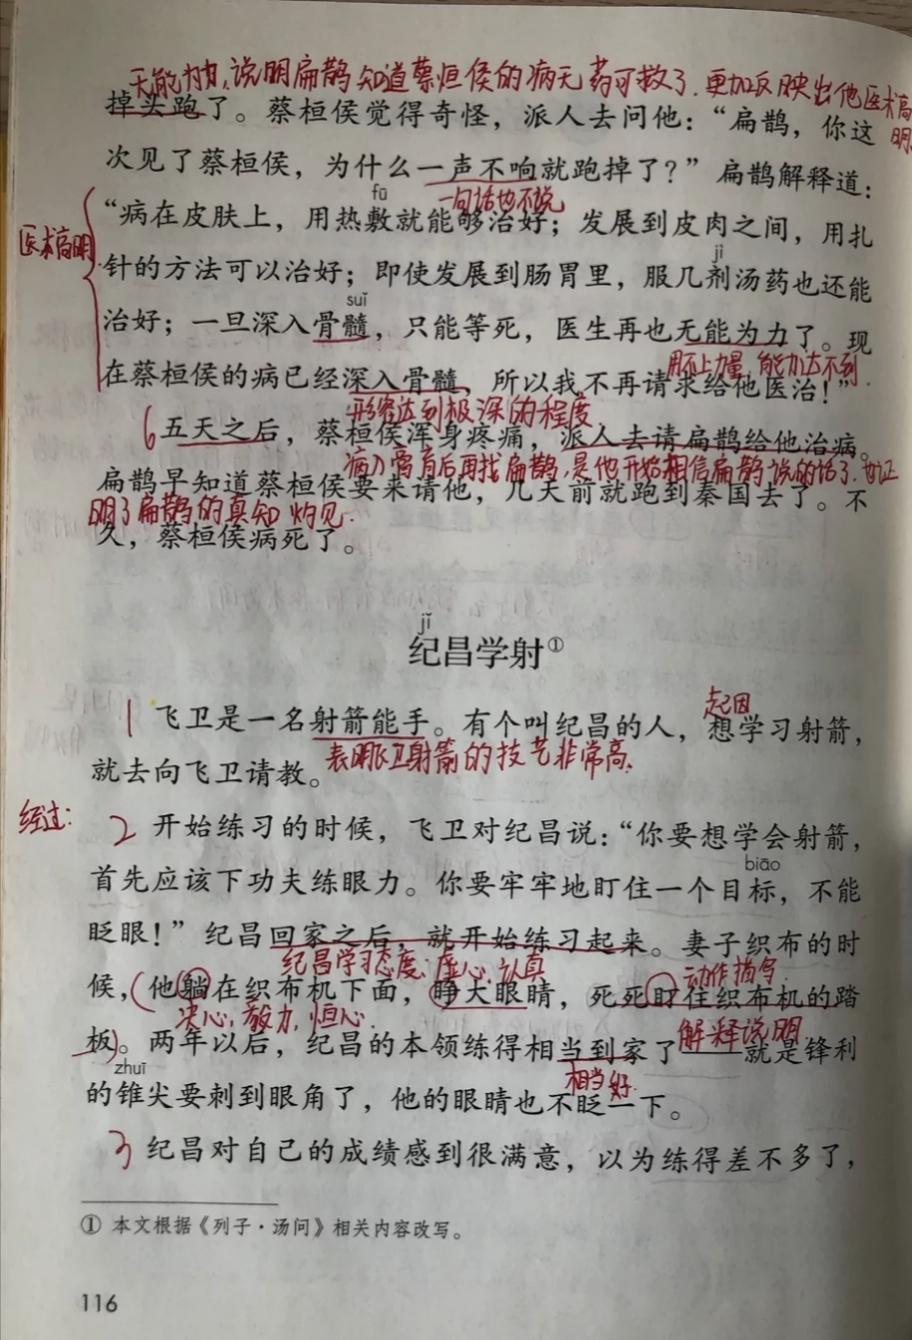 无能为力,说明扁鹊知道蔡桓侯的病无药可救了.更加反映出他医术高明
掉头跑了。蔡桓侯觉得奇怪，派人去问他：“扁鹊，你这
次见了蔡桓侯，为什么一声不响就跑掉了？”扁鹊解释道：
一句话也不说
fū
医术高明
“病在皮肤上，用热敷就能够治好；发展到皮肉之间，用扎
jì
针的方法可以治好；即使发展到肠胃里，服几剂汤药也还能
suǐ
治好；一旦深入骨髓，只能等死，医生再也无能为力了。现
用不上力量,能力达不到.
在蔡桓侯的病已经深入骨髓，所以我不再请求给他医治！”
形容达到极深的程度
6 五天之后，蔡桓侯浑身疼痛，派人去请扁鹊给他治病。
病入膏肓后再找扁鹊,是他开始相信扁鹊说的话了.也证
扁鹊早知道蔡桓侯要来请他，几天前就跑到秦国去了。不
明了扁鹊的真知灼见.
久，蔡桓侯病死了。
jǐ
纪昌学射①
起因
1 飞卫是一名射箭能手。有个叫纪昌的人，想学习射箭，
就去向飞卫请教。
表明飞卫射箭的技艺非常高.
经过:
2 开始练习的时候，飞卫对纪昌说：“你要想学会射箭，
biāo
首先应该下功夫练眼力。你要牢牢地盯住一个目标，不能
眨眼！”纪昌回家之后，就开始练习起来。妻子织布的时
纪昌学习态度:虚心,认真
动作描写.
候，(他躺在织布机下面，睁大眼睛，死死盯住织布机的踏
决心,毅力,恒心.
解释说明
板)。两年以后，纪昌的本领练得相当到家了——就是锋利
相当好.
zhuī
的锥尖要刺到眼角了，他的眼睛也不眨一下。
3 纪昌对自己的成绩感到很满意，以为练得差不多了，
① 本文根据《列子·汤问》相关内容改写。
116